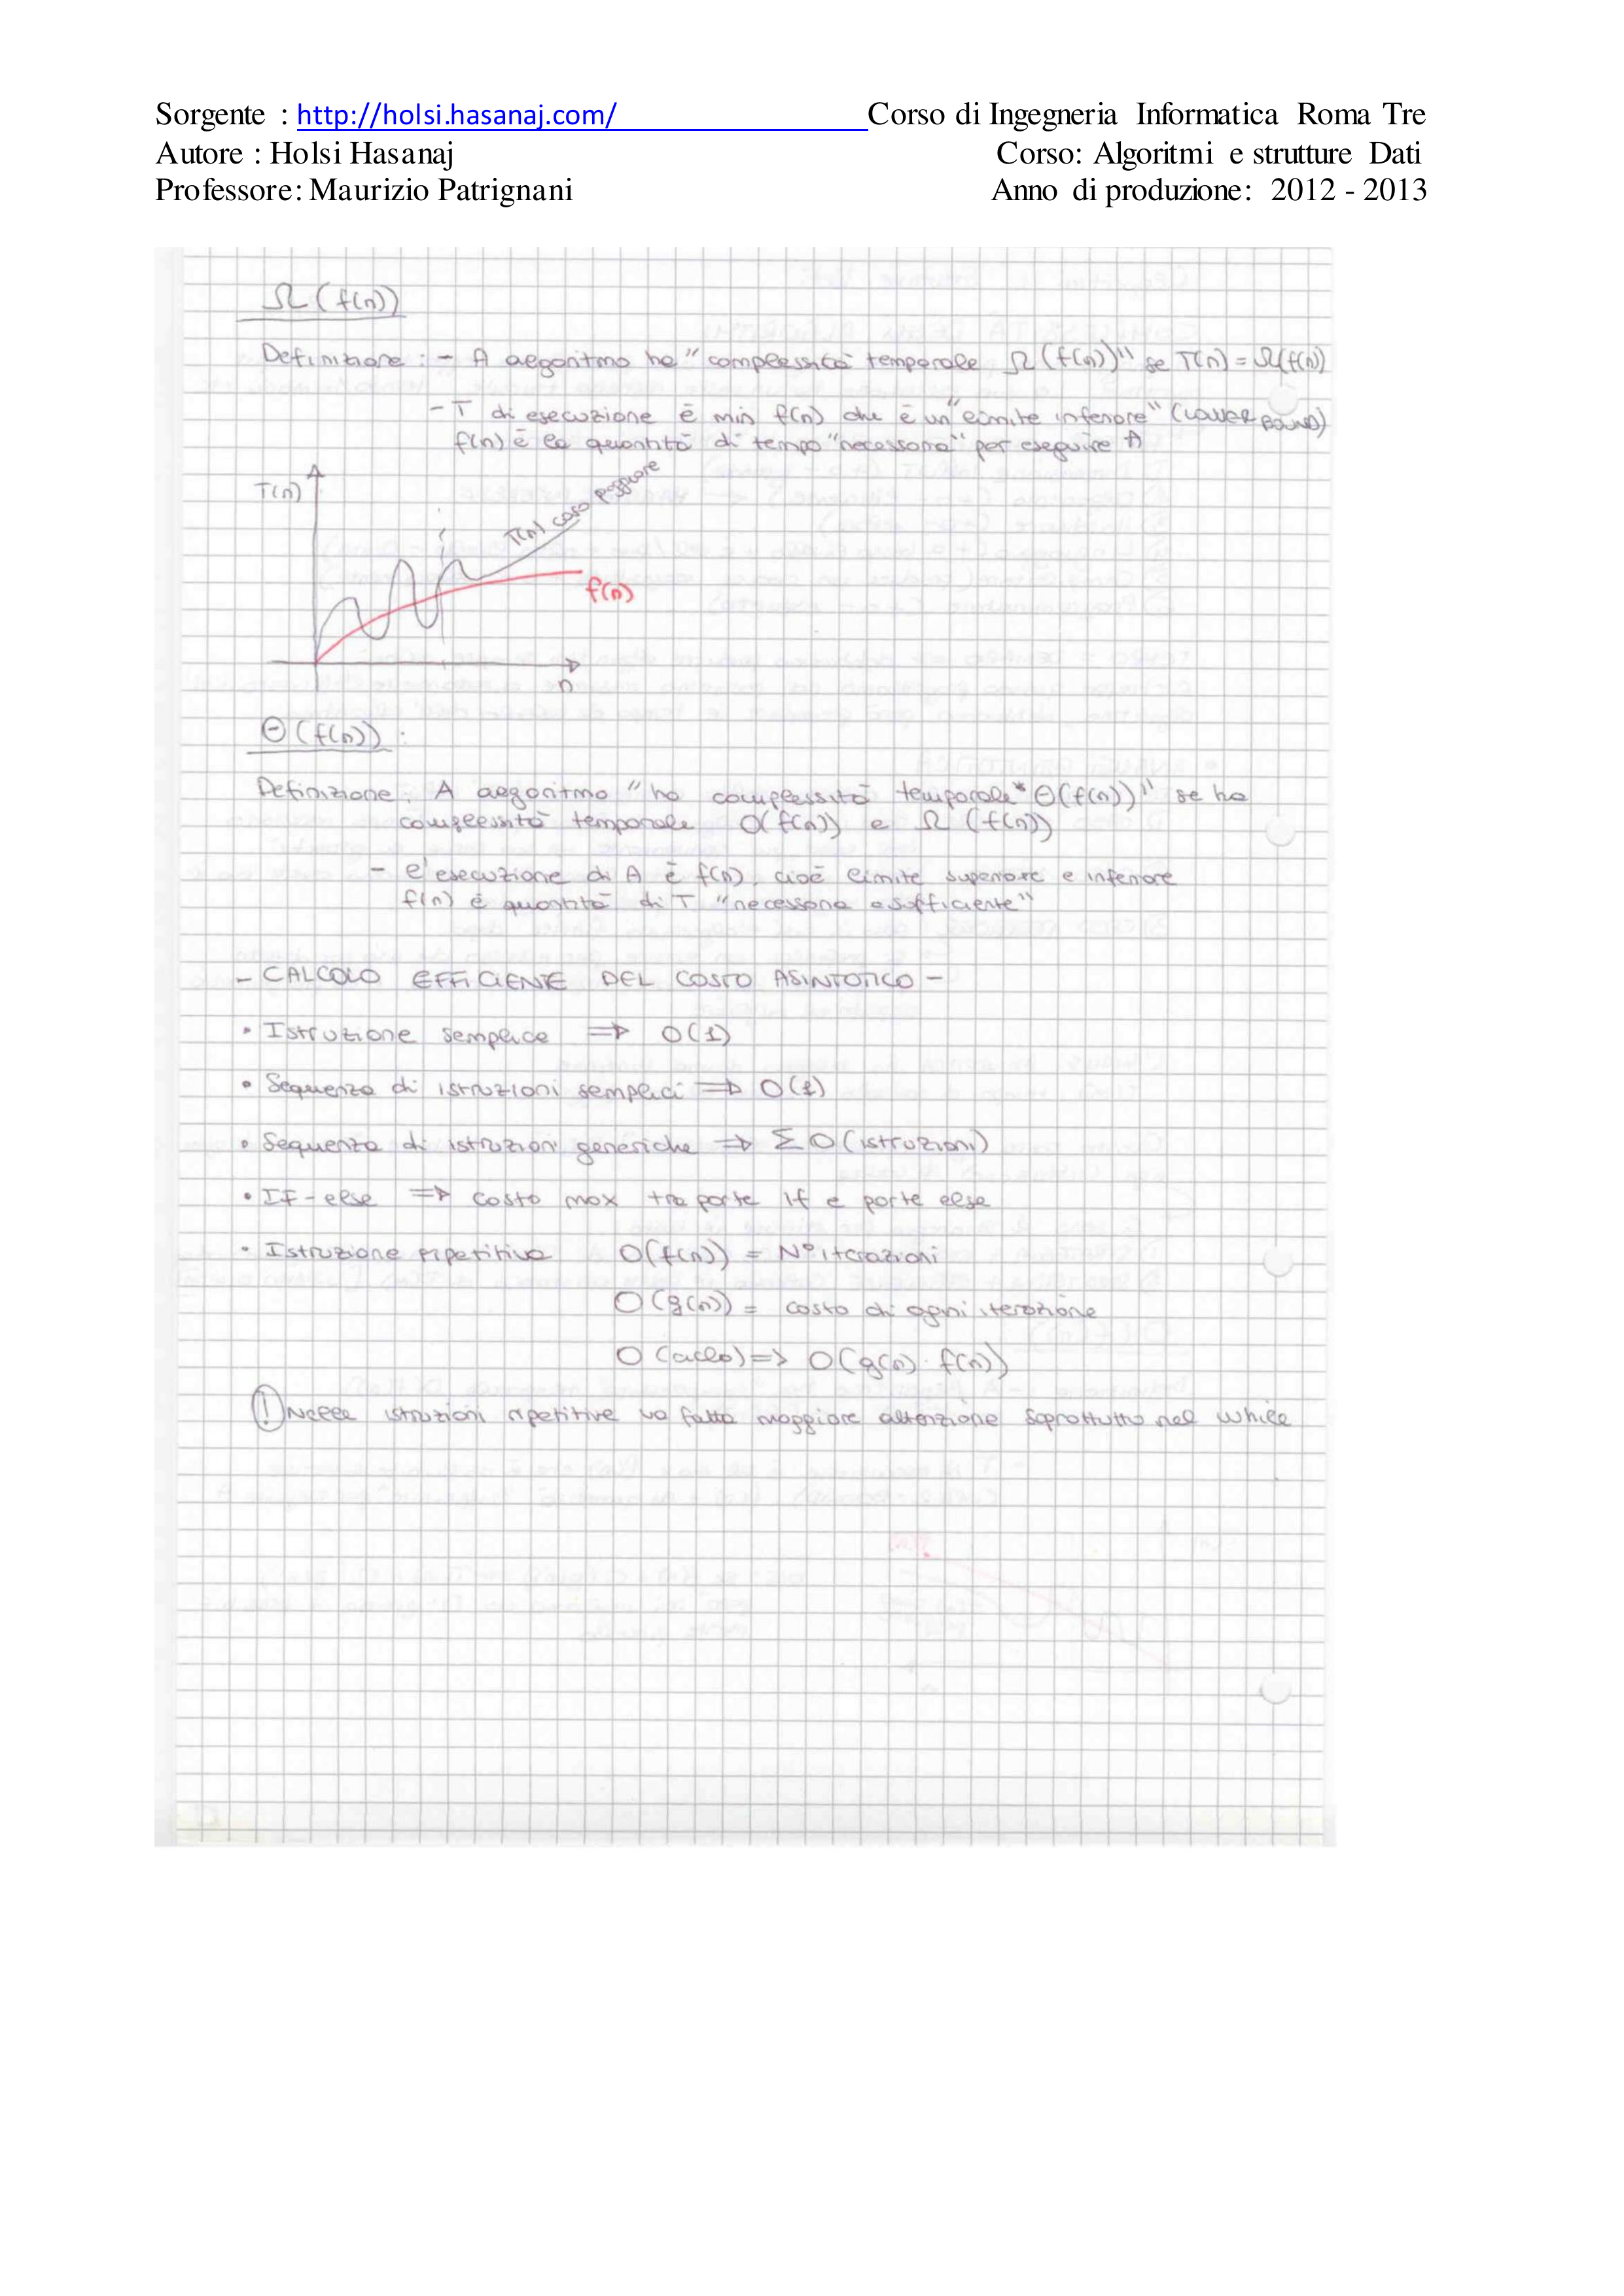 Sorgente : http://holsi.hasanaj.com/ Corso di Ingegneria Informatica Roma Tre
Autore : Holsi Hasanaj Corso: Algoritmi e strutture Dati
Professore: Maurizio Patrignani Anno di produzione: 2012 - 2013
Ω(f(n))
Definizione : - A algoritmo ha "complessità temporale Ω(f(n))" se T(n) = Ω(f(n))
- T di esecuzione è min f(n) che è un "limite inferiore" (LOWER BOUND)
f(n) è la quantità di tempo "necessaria" per eseguire A
T(n)
T(n) caso peggiore
f(n)
n
Θ(f(n)) :
Definizione: A algoritmo "ha complessità temporale* Θ(f(n))" se ha
complessità temporale O(f(n)) e Ω (f(n))
- l'esecuzione di A è f(n), cioè limite superiore e inferiore
f(n) è quantità di T "necessaria e sufficiente"
- CALCOLO EFFICIENTE DEL COSTO ASINTOTICO -
• Istruzione semplice => O(1)
• Sequenza di istruzioni semplici => O(1)
• Sequenza di istruzioni generiche => Σ O(istruzioni)
• If-else => costo max tra parte if e parte else
• Istruzione ripetitiva O(f(n)) = N° iterazioni
O(g(n)) = costo di ogni iterazione
O(ciclo) => O(g(n) · f(n))
! Nelle istruzioni ripetitive va fatta maggiore attenzione soprattutto nel while